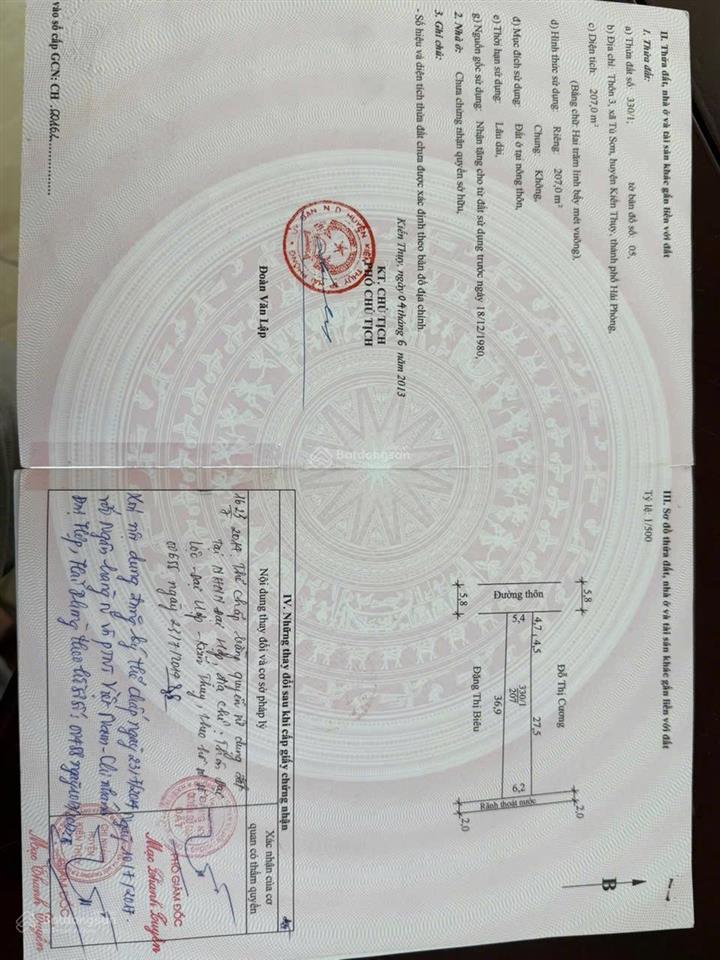 II. Thửa đất, nhà ở và tài sản khác gắn liền với đất
1. Thửa đất:
a) Thửa đất số: 330/1; tờ bản đồ số: 05,
b) Địa chỉ: Thôn 3, xã Tú Sơn, huyện Kiến Thụy, thành phố Hải Phòng,
c) Diện tích: 207,0 m²
(Bằng chữ: Hai trăm linh bẩy mét vuông),
d) Hình thức sử dụng: Riêng: 207,0 m²
Chung: Không,
đ) Mục đích sử dụng: Đất ở tại nông thôn,
e) Thời hạn sử dụng: Lâu dài,
g) Nguồn gốc sử dụng: Nhận tặng cho từ đất sử dụng trước ngày 18/12/1980,
2. Nhà ở: Chưa chứng nhận quyền sở hữu,
3. Ghi chú:
- Số hiệu và diện tích thửa đất chưa được xác định theo bản đồ địa chính.
Kiến Thụy, ngày 04 tháng 6 năm 2013
KT. CHỦ TỊCH
PHÓ CHỦ TỊCH
Đoàn Văn Lập
vào sổ cấp GCN: CH 00162
III. Sơ đồ thửa đất, nhà ở và tài sản khác gắn liền với đất
Tỷ lệ: 1/500
B
Đỗ Thị Cương
5,8
2,0
4,7
4,5
27,5
Đường thôn
5,4
330/1
207
6,2
Rãnh thoát nước
36,9
5,8
2,0
Đặng Thị Biêu
IV. Những thay đổi sau khi cấp giấy chứng nhận
Nội dung thay đổi và cơ sở pháp lý
Xác nhận của cơ quan có thẩm quyền
Thế chấp bằng quyền sử dụng đất
tại NHNN Đại Hợp, địa chỉ: Thôn
Đại Hợp - Kiến Thụy, theo hồ sơ số
00655 ngày 23/7/2014
PHÓ GIÁM ĐỐC
Mạc Thanh Truyền
Xoá nội dung đăng ký thế chấp ngày 23/7/2014
Việt Nam - Chi nhánh
Đại Hợp, Hải Phòng theo hồ sơ số
Mạc Thanh Truyền
Batdongsan
Batdongsan